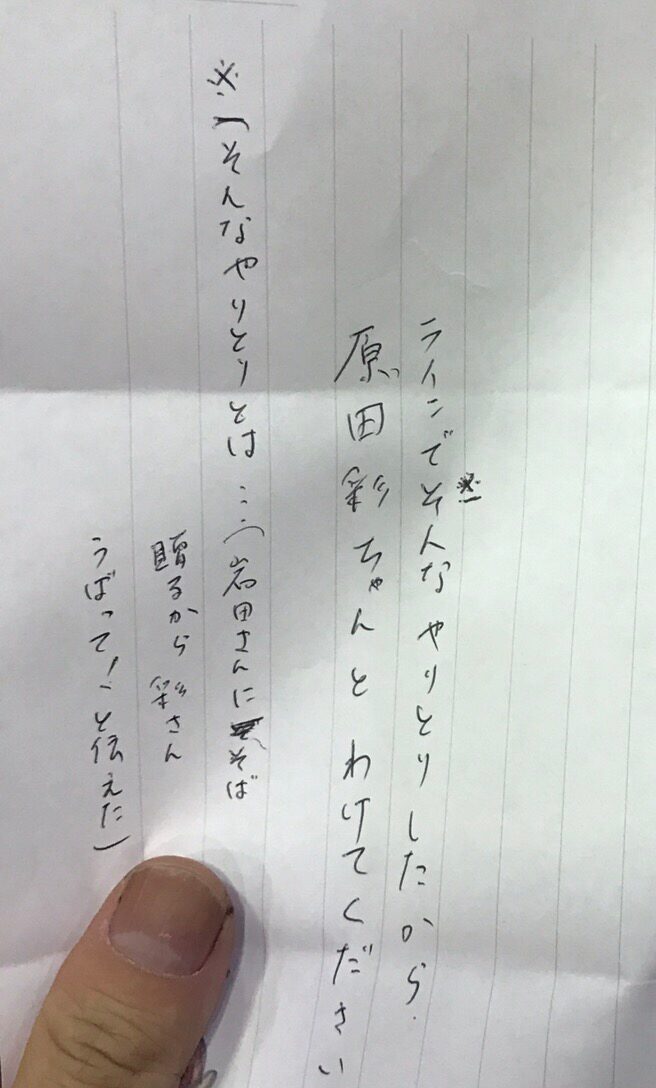 ラインでそんなやりとりしたから
※
原田彩ちゃんとわけてください
※(そんなやりとりとは…(岩田さんにそば
贈るから 彩さん
うばって!と伝えた)